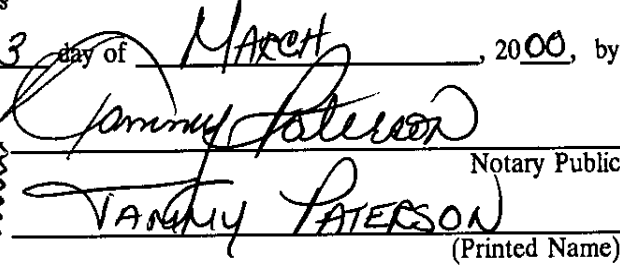 3 day of MARCH, 2000, by
Tammy Paterson
Notary Public
TAMMY PATERSON
(Printed Name)